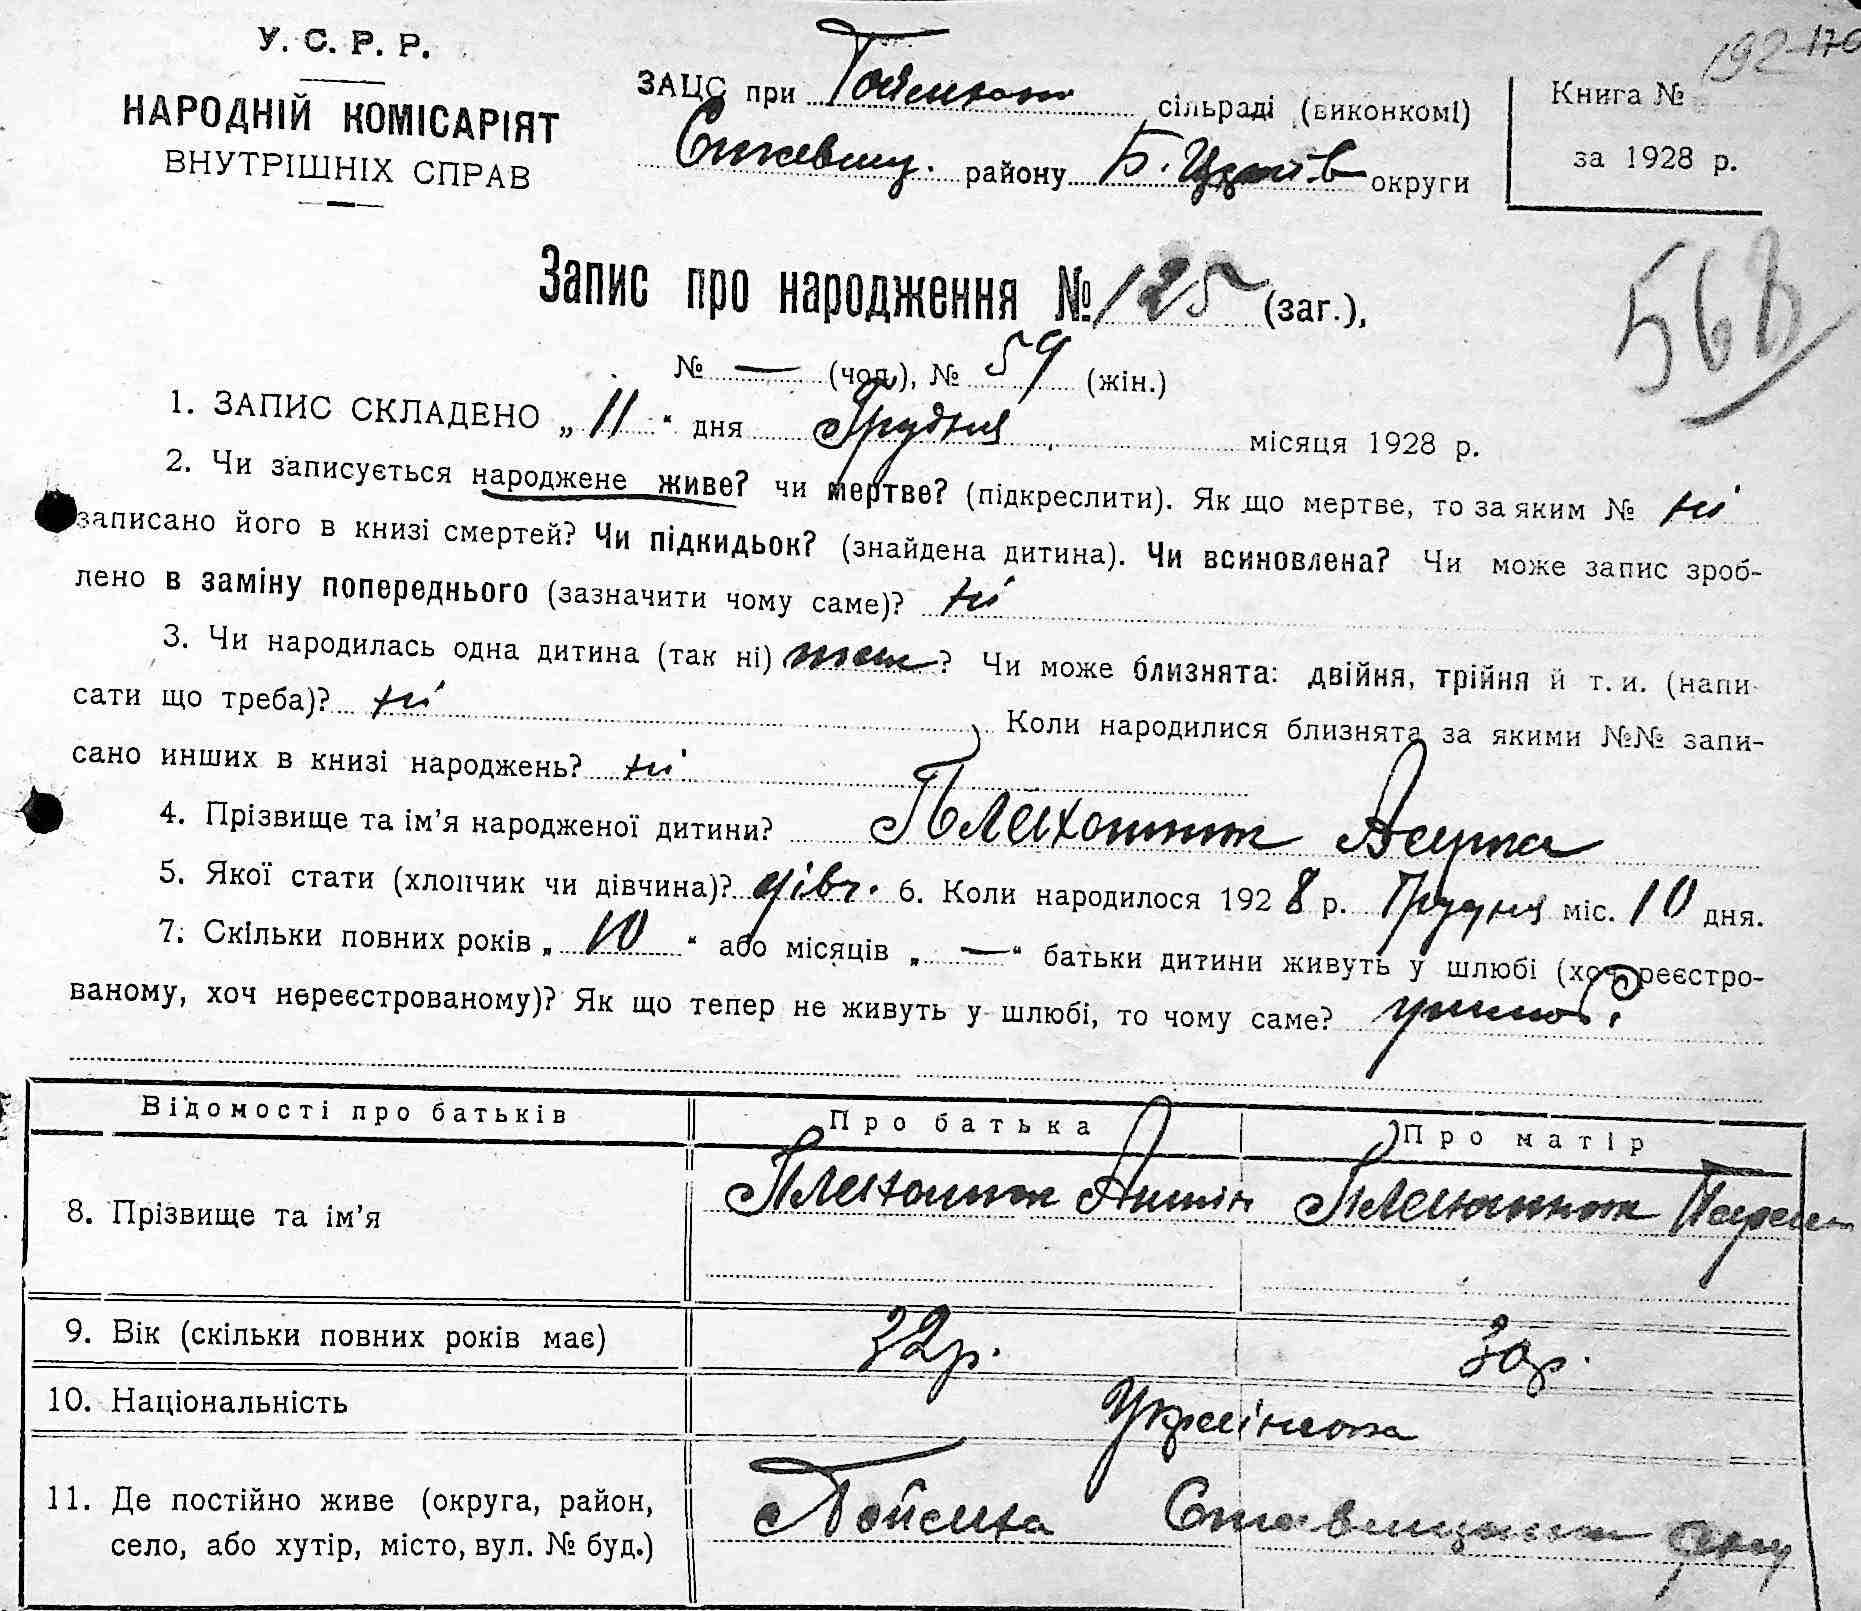 У. С. Р. Р.
НАРОДНІЙ КОМІСАРІЯТ
ВНУТРІШНІХ СПРАВ
ЗАЦС при сільраді (виконкомі)
району Б. Церків округи
Книга №
за 1928 р.
192 170
Запис про народження № 125 (заг.),
568
№ — (чол.), № 59 (жін.)
1. ЗАПИС СКЛАДЕНО „ 11 “ дня Грудня місяця 1928 р.
2. Чи записується народжене живе? чи мертве? (підкреслити). Як що мертве, то за яким № ні
записано його в книзі смертей? Чи підкидьок? (знайдена дитина). Чи всиновлена? Чи може запис зроб-
лено в заміну попереднього (зазначити чому саме)? ні
3. Чи народилась одна дитина (так ні) так? Чи може близнята: двійня, трійня й т. и. (напи-
сати що треба)? ні Коли народилися близнята за якими №№ запи-
сано инших в книзі народжень? ні
4. Прізвище та ім’я народженої дитини?
5. Якої стати (хлопчик чи дівчина)? дівч. 6. Коли народилося 1928 р. Грудня міс. 10 дня.
7. Скільки повних років „ 10 “ або місяців „ — “ батьки дитини живуть у шлюбі (хоч реєстро-
ваному, хоч нереєстрованому)? Як що тепер не живуть у шлюбі, то чому саме?
Відомості про батьків Про батька Про матір
8. Прізвище та ім’я
9. Вік (скільки повних років має) 32 р. 30 р.
10. Національність
11. Де постійно живе (округа, район,
село, або хутір, місто, вул. № буд.)